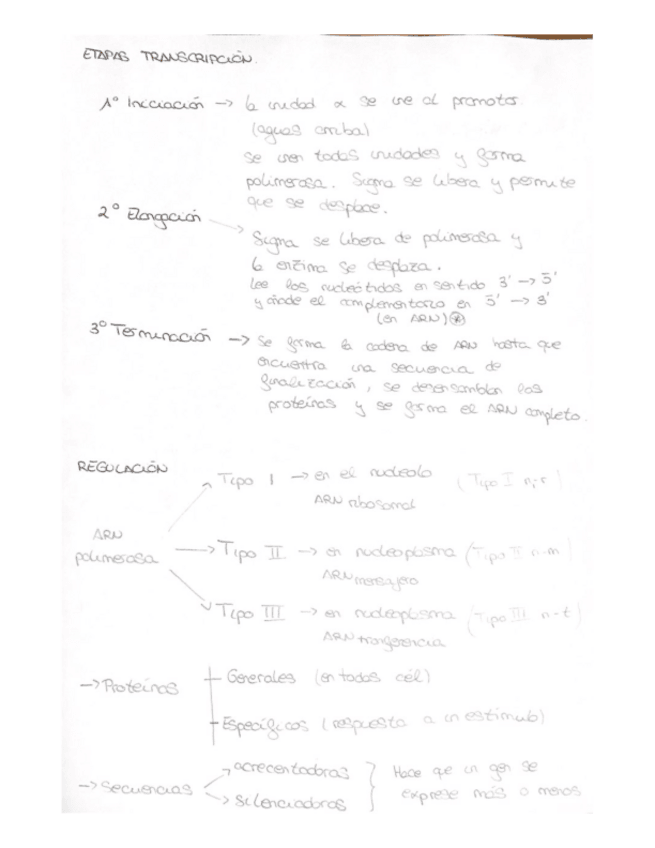 ETAPAS TRANSCRIPCIÓN.
1º Iniciación → la unidad α se une al promotor
(aguas arriba)
se unen todas unidades y forma
polimerasa. Sigma se libera y permite
que se desplace.
2º Elongación → Sigma se libera de polimerasa y
la enzima se desplaza.
Lee los nucleótidos en sentido 3' → 5'
y añade el complementario en 5' → 3'
(en ARN) *
3º Terminación → Se forma la cadena de ARN hasta que
encuentra una secuencia de
finalización, se desensamblan las
proteínas y se forma el ARN completo.
REGULACIÓN
ARN
polimerasa
→ Tipo I → en el nucleolo (Tipo I n-r)
ARN ribosomal
→ Tipo II → en nucleoplasma (Tipo II n-m)
ARN mensajero
→ Tipo III → en nucleoplasma (Tipo III n-t)
ARN transferencia
→ Proteínas
Generales (en todas cél)
Específicos (respuesta a un estímulo)
→ Secuencias
→ acrecentadoras
→ silenciadoras
} Hace que un gen se
exprese más o menos